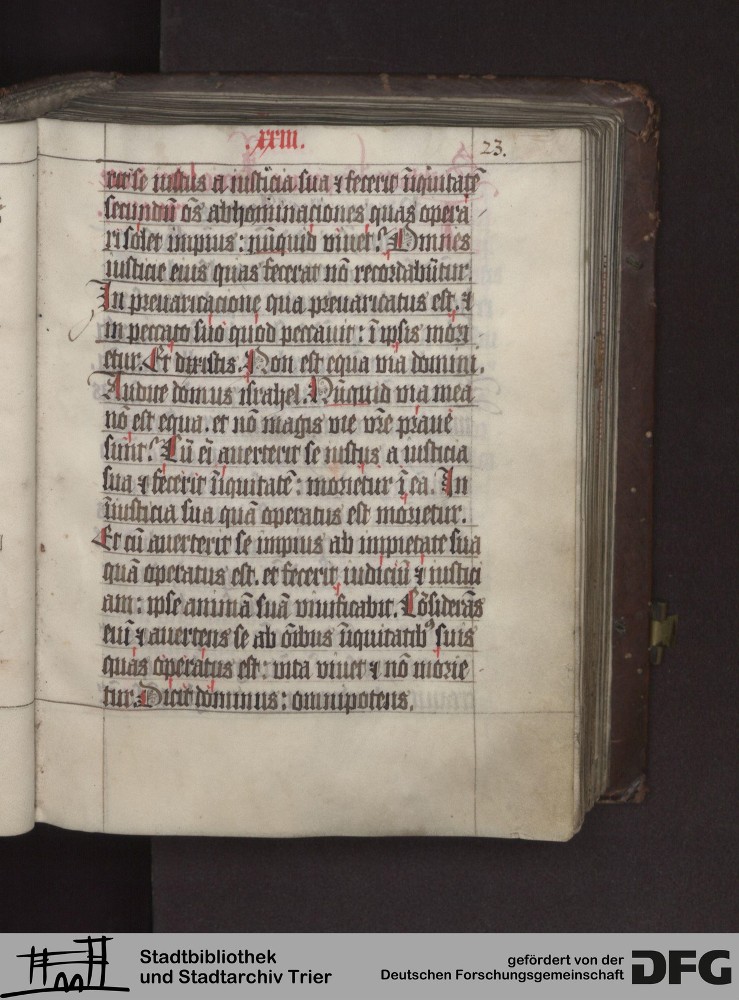 .xxiii.
23.
rit se iustus a iusticia sua ⁊ fecerit iniquitatē
secundū oīs abhominaciones quas opera
ri solet impius: nūquid viuet? Omnes
iusticie eius quas fecerat nō recordabūtur.
In preuaricacione qua preuaricatus est. ⁊
in peccato suo quod peccauit: ī ipsis mori
etur. Et dixistis. Non est equa via domini.
Audite domus israhel. Nūquid via mea
nō est equa. et nō magis vie vr̄e praue
sunt? Cū eī auerterit se iustus a iusticia
sua ⁊ fecerit īiquitatē: morietur ī ea. In
īiusticia sua quā operatus est morietur.
Et cū auerterit se impius ab impietate sua
quā operatus est. et fecerit iudiciū ⁊ iustici
am: ipse animā suā viuificabit. Cōsiderās
eni ⁊ auertens se ab oībus īiquitatibꝰ suis
quas operatus est: vita viuet ⁊ nō morie
tur. Dicit dominus: omnipotens.
Stadtbibliothek
und Stadtarchiv Trier
gefördert von der
Deutschen Forschungsgemeinschaft
DFG